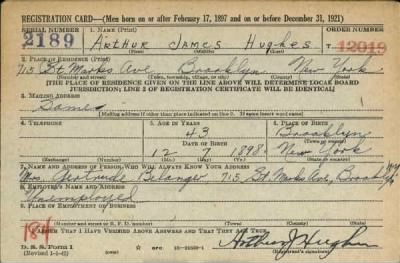 REGISTRATION CARD—(Men born on or after February 17, 1897 and on or before December 31, 1921)
SERIAL NUMBER 1. NAME (Print) ORDER NUMBER
2189 Arthur James Hughes 12019
(First) (Middle) (Last)
2. PLACE OF RESIDENCE (Print)
715 St. Marks Ave Brooklyn New York
(Number and street) (Town, township, village, or city) (County) (State)
[THE PLACE OF RESIDENCE GIVEN ON THE LINE ABOVE WILL DETERMINE LOCAL BOARD
JURISDICTION; LINE 2 OF REGISTRATION CERTIFICATE WILL BE IDENTICAL]
3. MAILING ADDRESS
Same
[Mailing address if other than place indicated on line 2. If same insert word same]
4. TELEPHONE 5. AGE IN YEARS 6. PLACE OF BIRTH
43 Brooklyn
DATE OF BIRTH (Town or county)
12 7 1898 New York
(Exchange) (Number) (Mo.) (Day) (Yr.) (State or country)
7. NAME AND ADDRESS OF PERSON WHO WILL ALWAYS KNOW YOUR ADDRESS
Mrs. Gertrude Belanger 715 St. Marks Ave, Brook
8. EMPLOYER'S NAME AND ADDRESS
Unemployed
9. PLACE OF EMPLOYMENT OR BUSINESS
(Number and street or R. F. D. number) (Town) (County) (State)
I AFFIRM THAT I HAVE VERIFIED ABOVE ANSWERS AND THAT THEY ARE TRUE.
D. S. S. Form 1
(Revised 1-1-42) (over) Arthur J Hughes